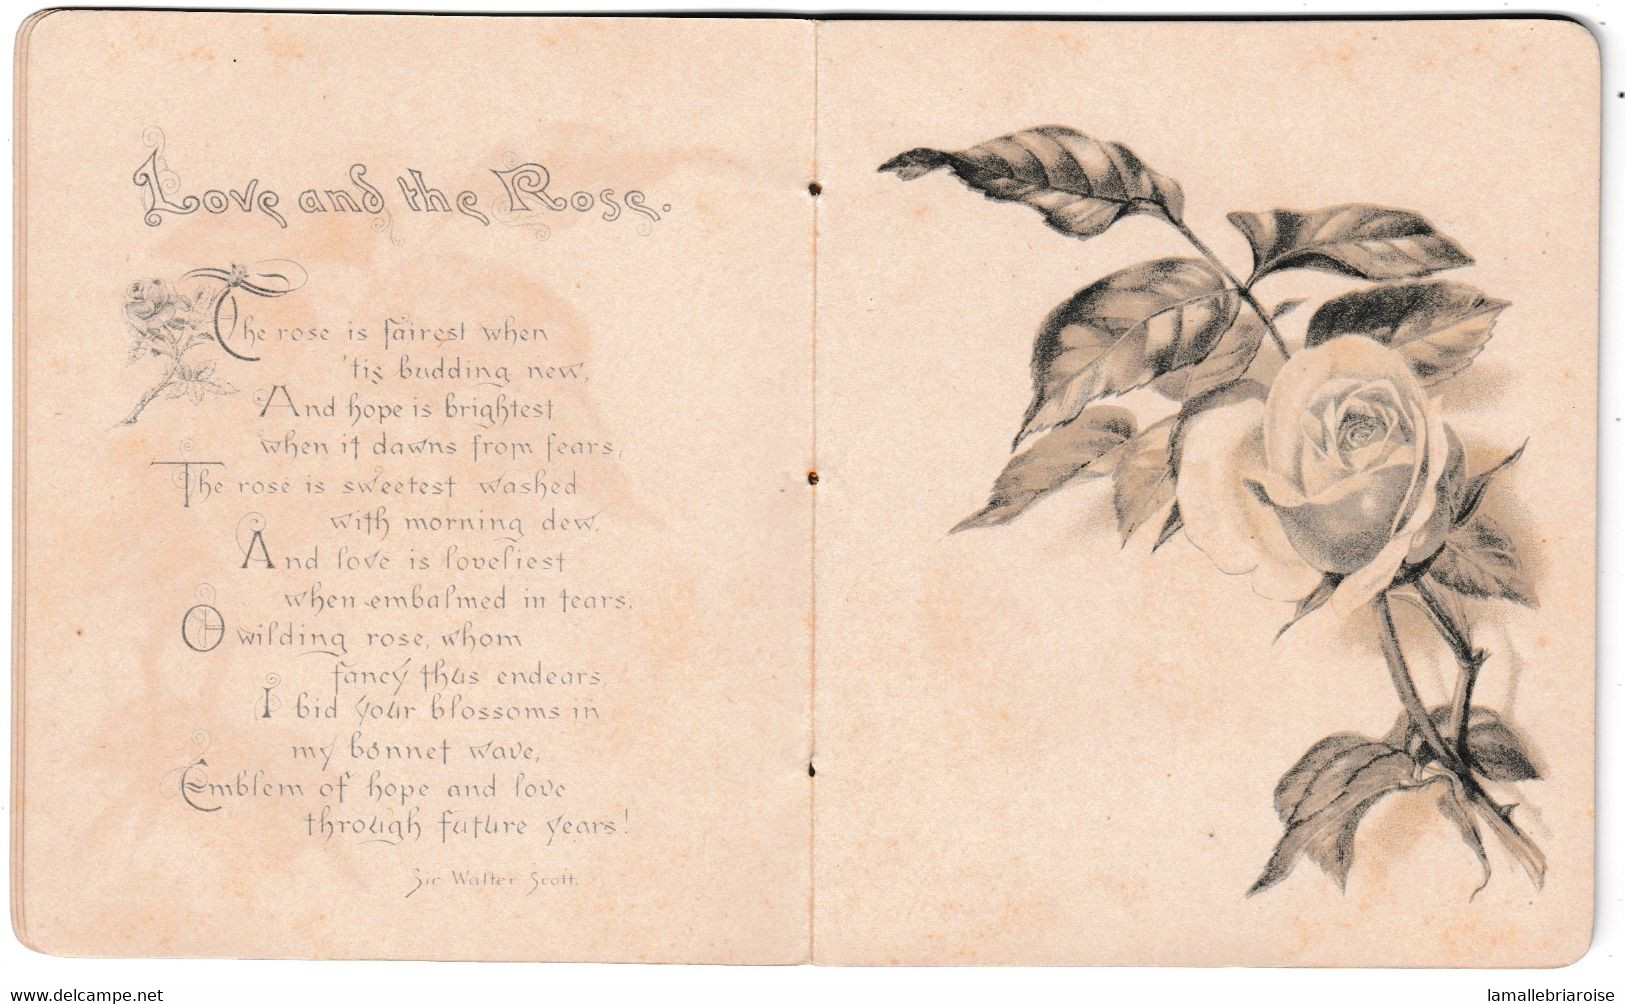 Love and the Rose.
The rose is fairest when
'tis budding new,
And hope is brightest
when it dawns from fears;
The rose is sweetest washed
with morning dew,
And love is loveliest
when embalmed in tears.
O wilding rose, whom
fancy thus endears,
I bid your blossoms in
my bonnet wave,
Emblem of hope and love
through future years!
Sir Walter Scott.
www.delcampe.net
lamallebriaroise